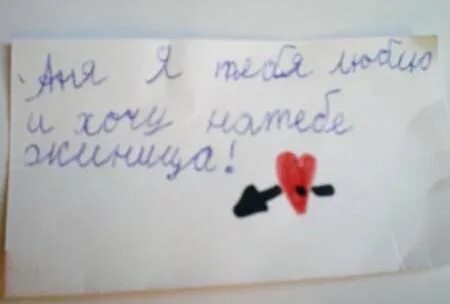 Аня Я тебя люблю
и хочу натебе
жиница!